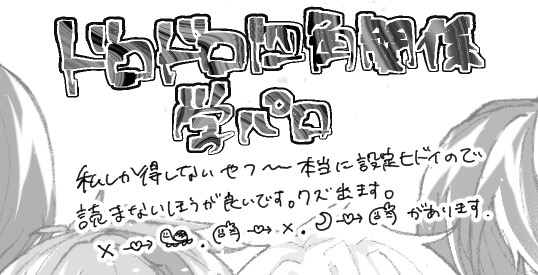 ドロドロ四角関係
学ペロ
私しか得しないヤツ〜本当に設定ヒドイので
読まないほうが良いです。クズ出ます。
× → . → × . → があります.